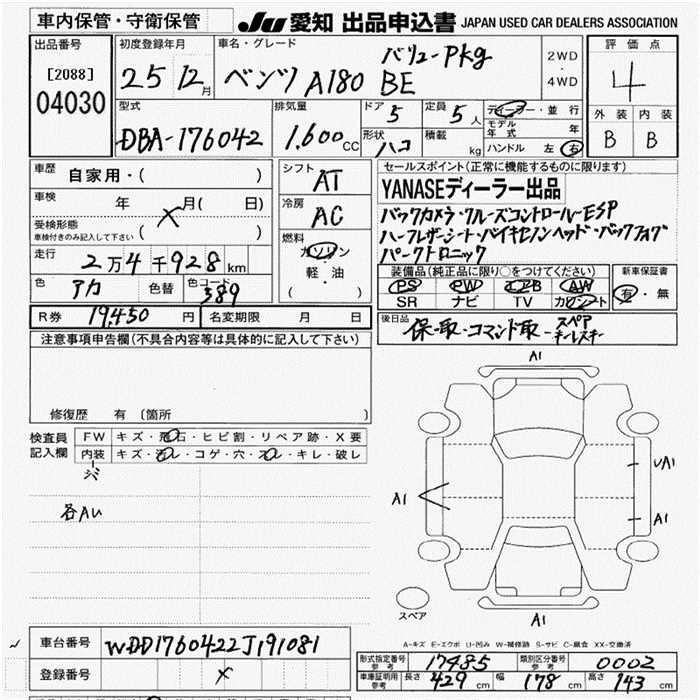 車内保管・守衛保管
JU 愛知 出品申込書 JAPAN USED CAR DEALERS ASSOCIATION
出品番号
[2088]
04030
初度登録年月
25 12月
車名・グレード
ベンツ A180 バリューPkg BE
2WD
・
4WD
評価点
4
外装 内装
B B
型式
DBA-176042
排気量
1,600cc
ドア 5
形状 ハコ
定員 5人
積載 kg
ディーラー・並行
モデル年式 年
ハンドル 左 右
車歴 自家用・( )
車検 年 月( 日)
受検形態
車検付きのみ記入して下さい ( )
X
走行 2万4千928km
色 アカ 色替 色コード 389
R券 19,450円 名変期限 月 日
シフト AT
冷房 AC
燃料
ガソリン
・
軽・油
( )
セールスポイント(正常に機能するものに限ります)
YANASEディーラー出品
バックカメラ・クルーズコントロールESP
ハーフレザーシート・バイキセノンヘッド・バックフォグ
パークトロニック
装備品(純正品に限り○をつけてください)
PS PW エアB AW
SR ナビ TV カワシート
新車保証書
有・無
後日品
保-取・コマンド取-スペア
キーレスキー
注意事項申告欄(不具合内容等は具体的に記入して下さい)
修復歴 有 〔箇所 〕
検査員記入欄
FW キズ・飛石・ヒビ割・リペア跡・X要
内装 キズ・汚レ・コゲ・穴・スレ・キレ・破レ
各AU
A1
UA1
A1
A1
A1
スペア
A-キズ E-エクボ U-凹み W-補修跡 S-サビ C-腐食 XX-交換済
車台番号 WDD1760422J191081
登録番号 X
形式指定番号 参考 17485 類別区分番号 参考 0002
車庫証明用 参考 長さ 429cm 幅 178cm 高さ 143cm